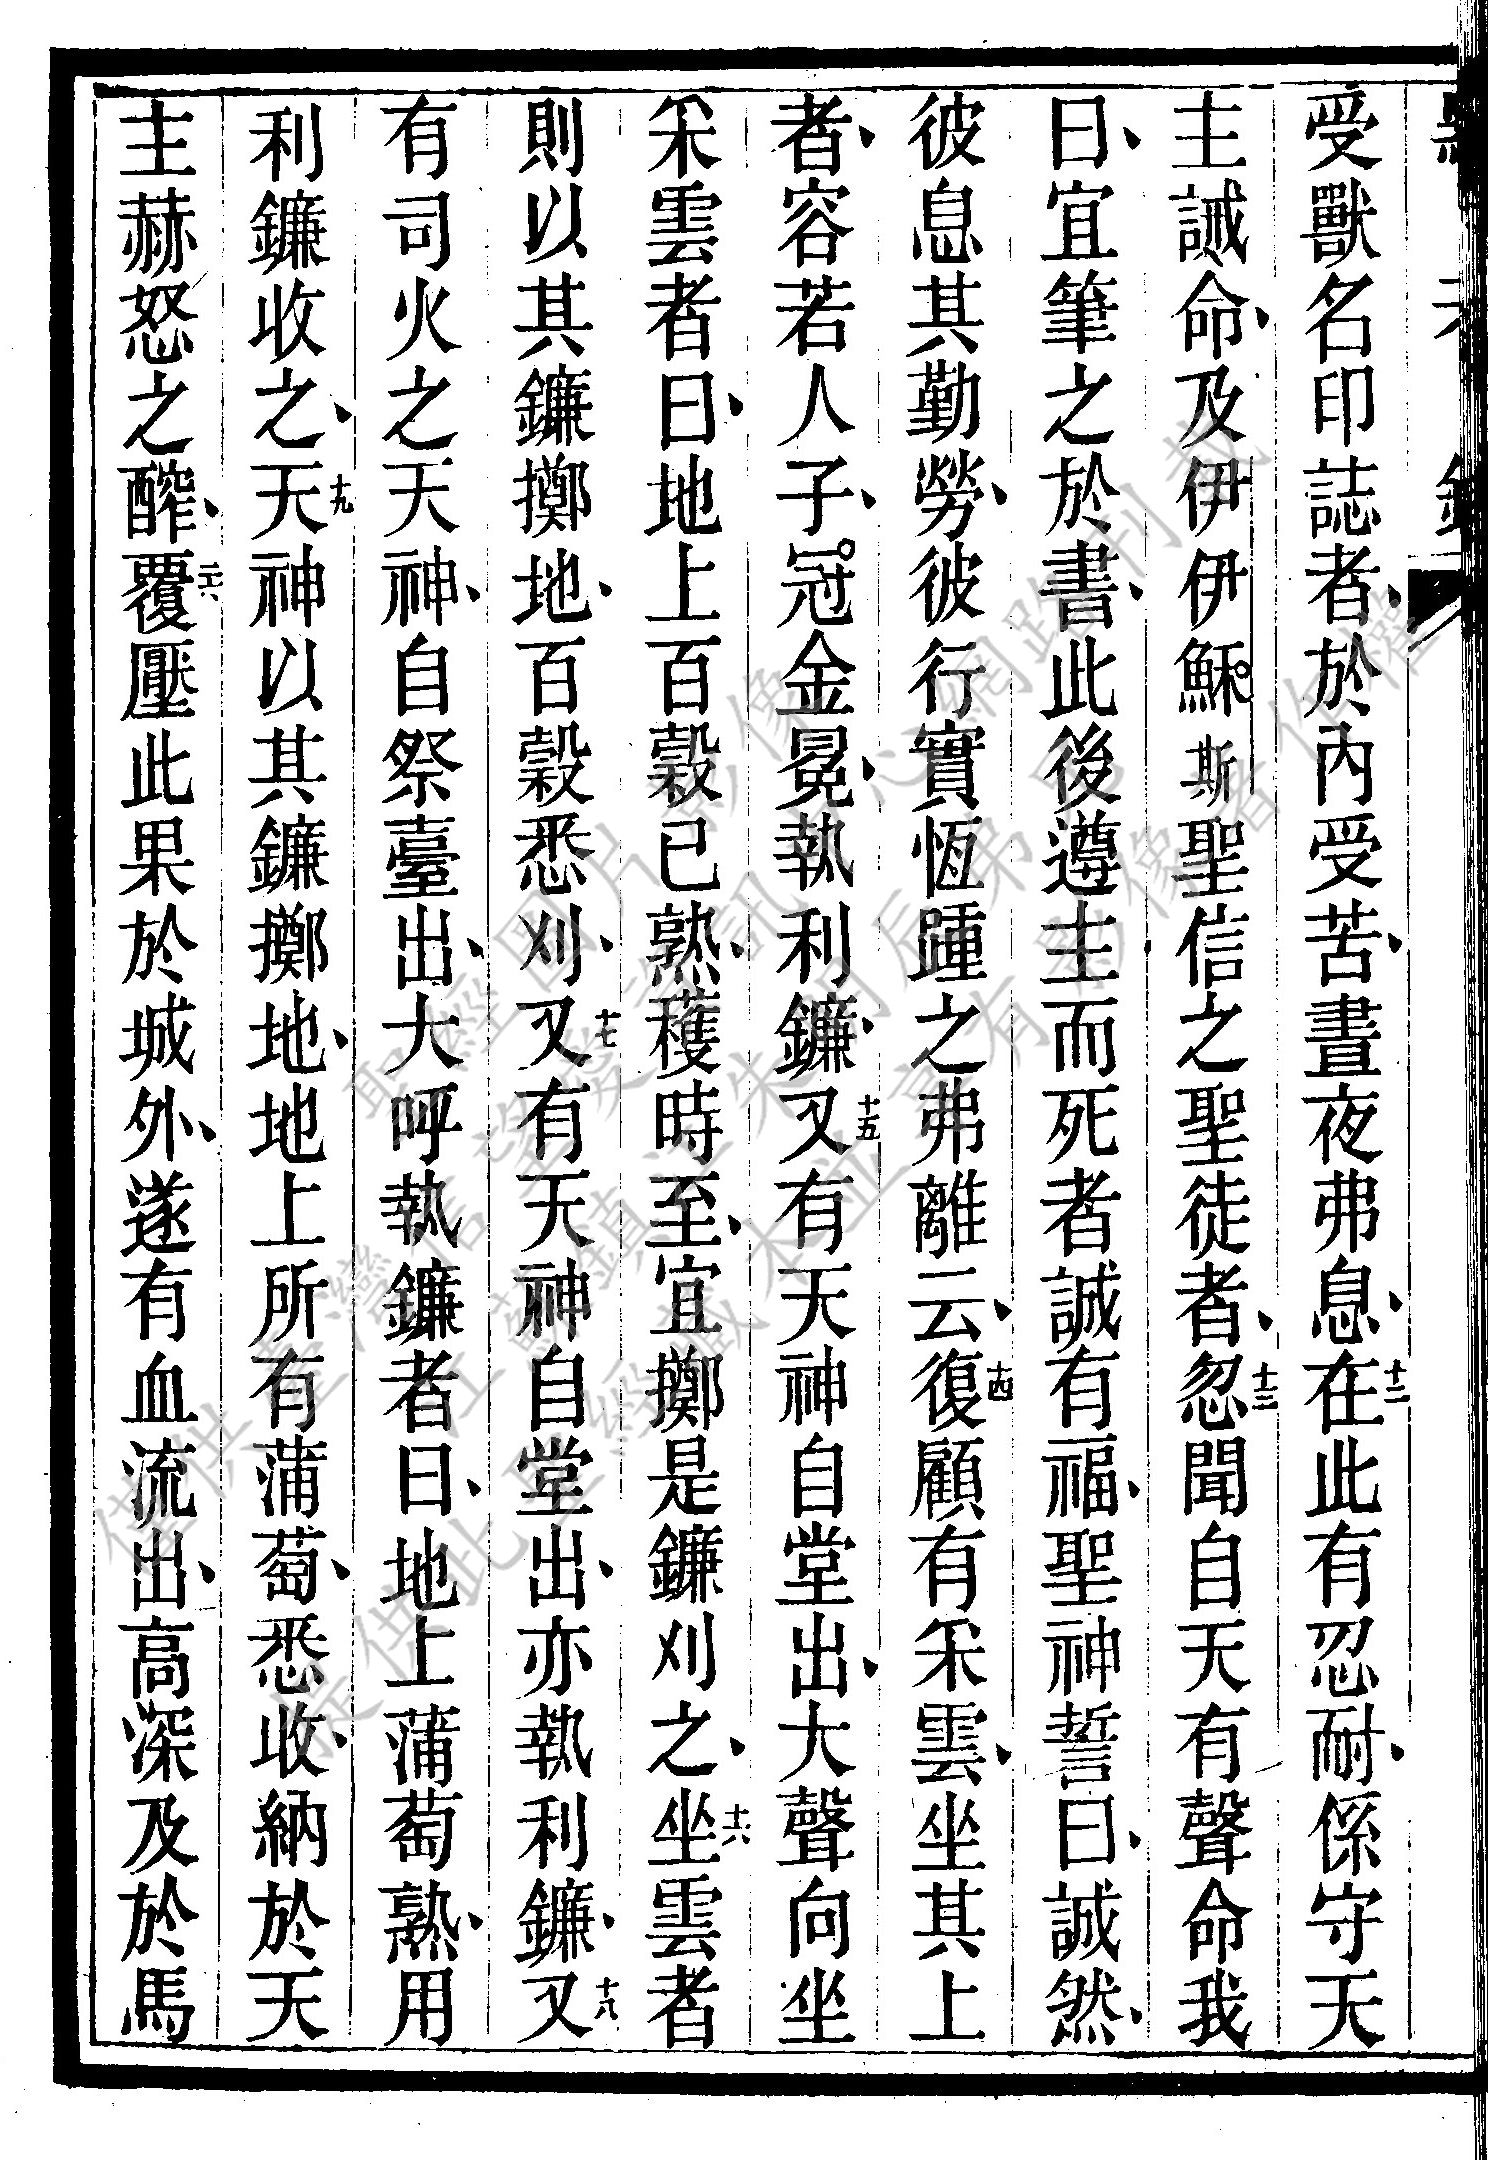 受獸名印誌者、於內受苦、晝夜弗息、十二在此有忍耐、係守天
主誡命、及伊伊穌斯聖信之聖徒者、十三忽聞自天有聲命我
曰、宜筆之於書、此後遵主而死者誠有福、聖神誓曰、誠然、
彼息其勤勞、彼行實恆踵之弗離云、十四復顧有釆雲、坐其上
者、容若人子、冠金冕、執利鐮、十五又有天神自堂出、大聲向坐
釆雲者曰、地上百穀已熟、穫時至、宜擲是鐮刈之、十六坐雲者
則以其鐮擲地、百穀悉刈、十七又有天神自堂出、亦執利鐮、十八又
有司火之天神、自祭臺出、大呼執鐮者曰、地上蒲萄熟、用
利鐮收之、十九天神以其鐮擲地、地上所有蒲萄、悉收、納於天
主赫怒之醡、二六覆壓此果於城外、遂有血流出、高深及於馬